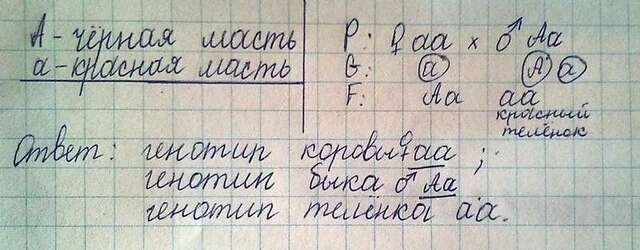 А - чёрная масть
а - красная масть
P: ♀ аа × ♂ Аа
G: а А а
F: Аа аа
красный
телёнок
Ответ: генотип коровы ♀ аа ;
генотип быка ♂ Аа
генотип телёнка аа.